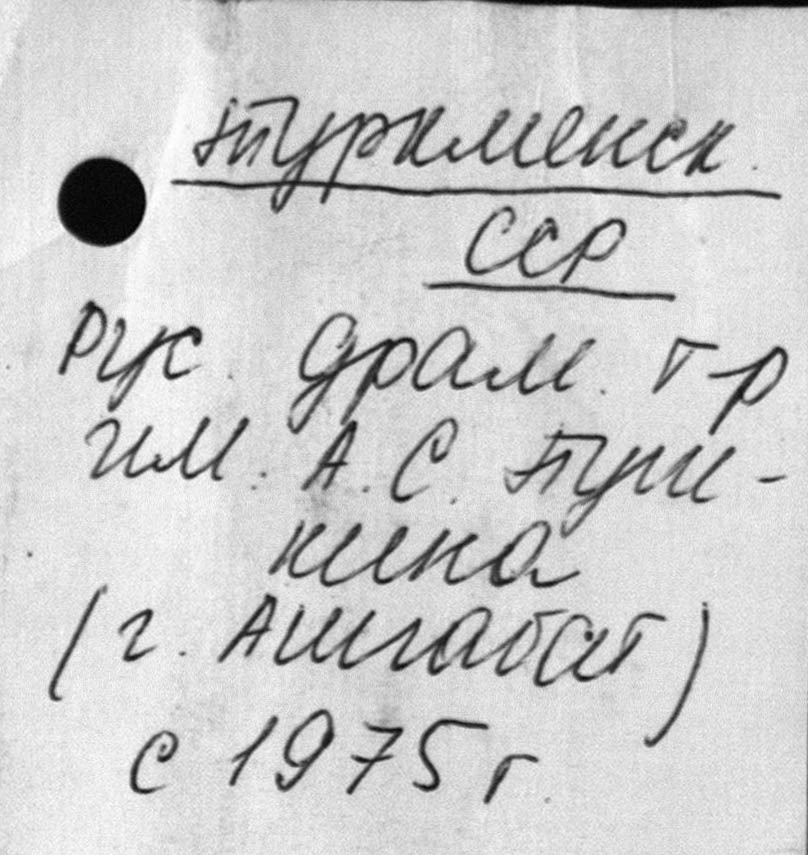 Туркменск.
ССР
Рус. драм. т-р
им. А. С. Пуш-
кина
(г. Ашгабат)
с 1975 г.